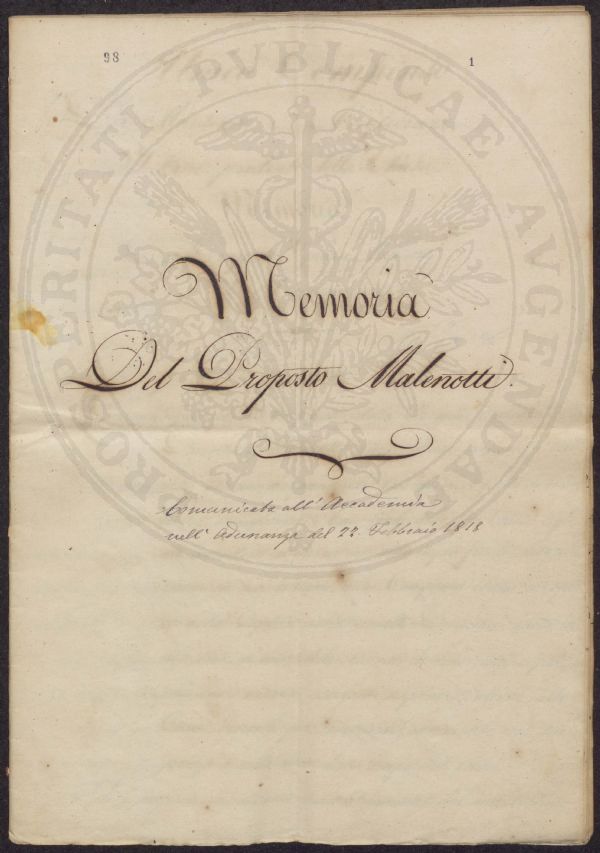 98
1
PROSPERITATI PVBLICAE AVGENDAE
Memoria
Del Proposto Malenotti.
Comunicata all'Accademia
nell'Adunanza del 22. Febbraio 1818